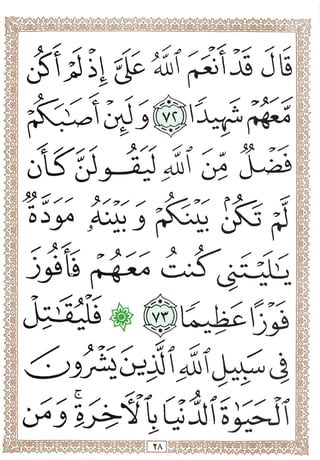 قَالَ قَدْ أَنْعَمَ ٱللَّهُ عَلَيَّ إِذْ لَمْ أَكُن
مَّعَهُمْ شَهِيدًا ٧٢ وَلَئِنْ أَصَٰبَكُمْ
فَضْلٌ مِّنَ ٱللَّهِ لَيَقُولَنَّ كَأَن
لَّمْ تَكُنۢ بَيْنَكُمْ وَبَيْنَهُۥ مَوَدَّةٌ
يَٰلَيْتَنِى كُنتُ مَعَهُمْ فَأَفُوزَ
فَوْزًا عَظِيمًا ٧٣ ۞ فَلْيُقَٰتِلْ
فِى سَبِيلِ ٱللَّهِ ٱلَّذِينَ يَشْرُونَ
ٱلْحَيَوٰةَ ٱلدُّنْيَا بِٱلْءَاخِرَةِ ۚ وَمَن
٢٨